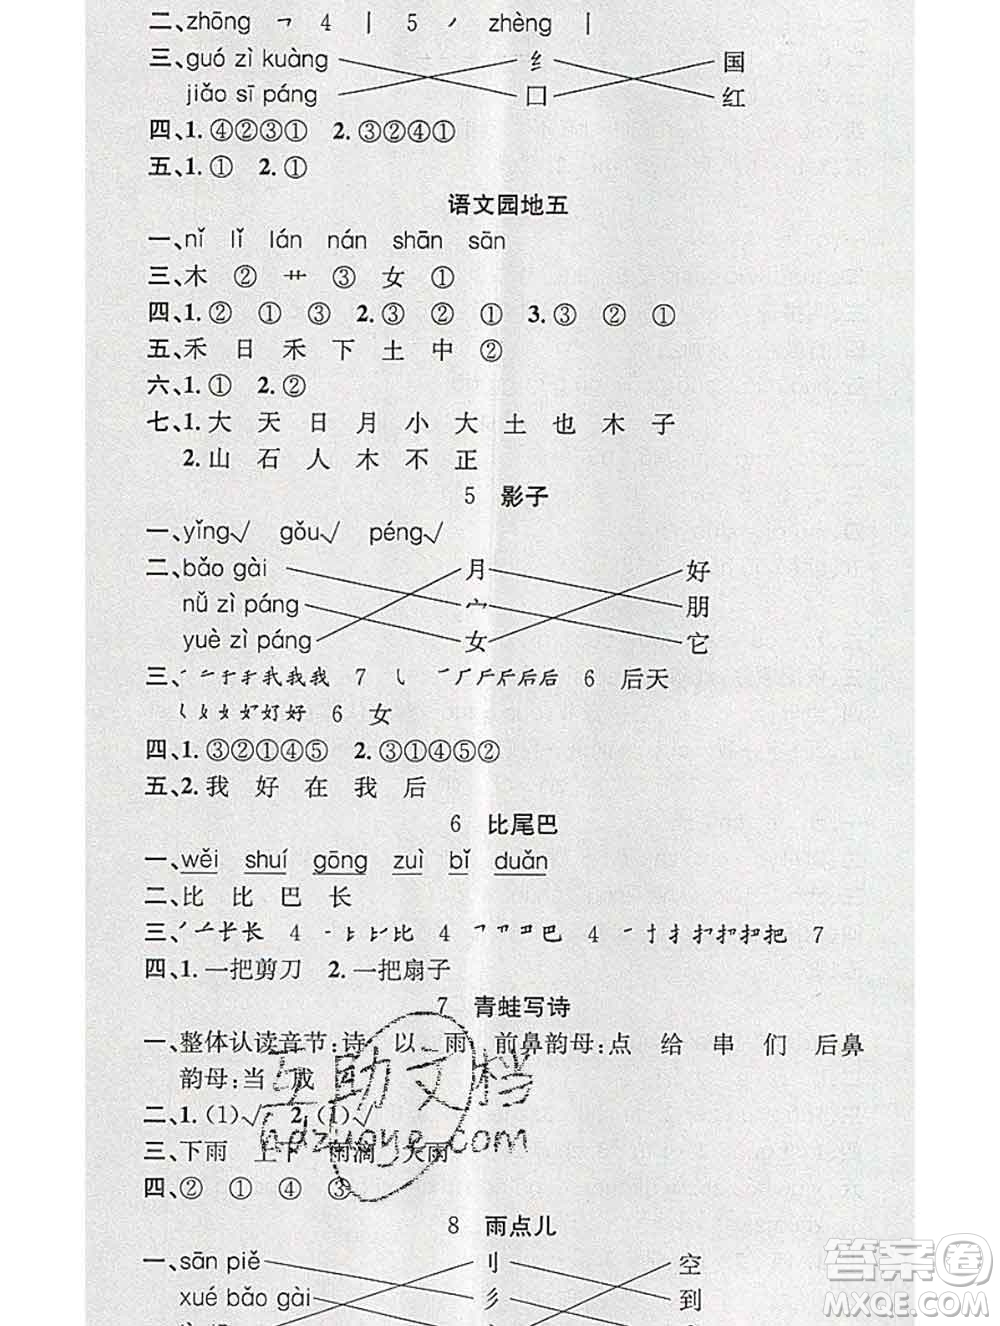 二、zhōng ㇕ 4 丨 5 ㇒ zhèng 丨
三、guó zì kuàng 纟 国
jiǎo sī páng 囗 红
四、1.④②③① 2.③②④①
五、1.① 2.①
语文园地五
一、nǐ lǐ lán nán shān sān
三、木 ② 艹 ③ 女 ①
四、1.② ① ③ 2.③ ② ① 3.③ ② ①
五、禾 日 禾 下 土 中 ②
六、1.① 2.②
七、1.大 天 日 月 小 大 土 也 木 子
2.山 石 人 木 不 正
5 影子
一、yǐng√ gǒu√ péng√
二、bǎo gài 月 好
nǚ zì páng 宀 朋
yuè zì páng 女 它
三、我我我 7 后后 6 后天
好好 6 女
四、1.③②①④⑤ 2.③①④⑤②
五、2.我 好 在 我 后
6 比尾巴
一、wěi shuí gōng zuì bǐ duǎn
二、比 比 巴 长
三、长长 4 比比 4 巴 4 把 7
四、1.一把剪刀 2.一把扇子
7 青蛙写诗
一、整体认读音节:诗 以 雨 前鼻韵母:点 给 串 们 后鼻
韵母:当 成
二、1.(1)√ 2.(1)√
三、下雨 上下 雨滴 大雨
四、② ① ④ ③
8 雨点儿
一、sān piě 刂 空
xué bǎo gài 彡 到
互助文档
hdzuoye.com
答案圈
MXQE.COM